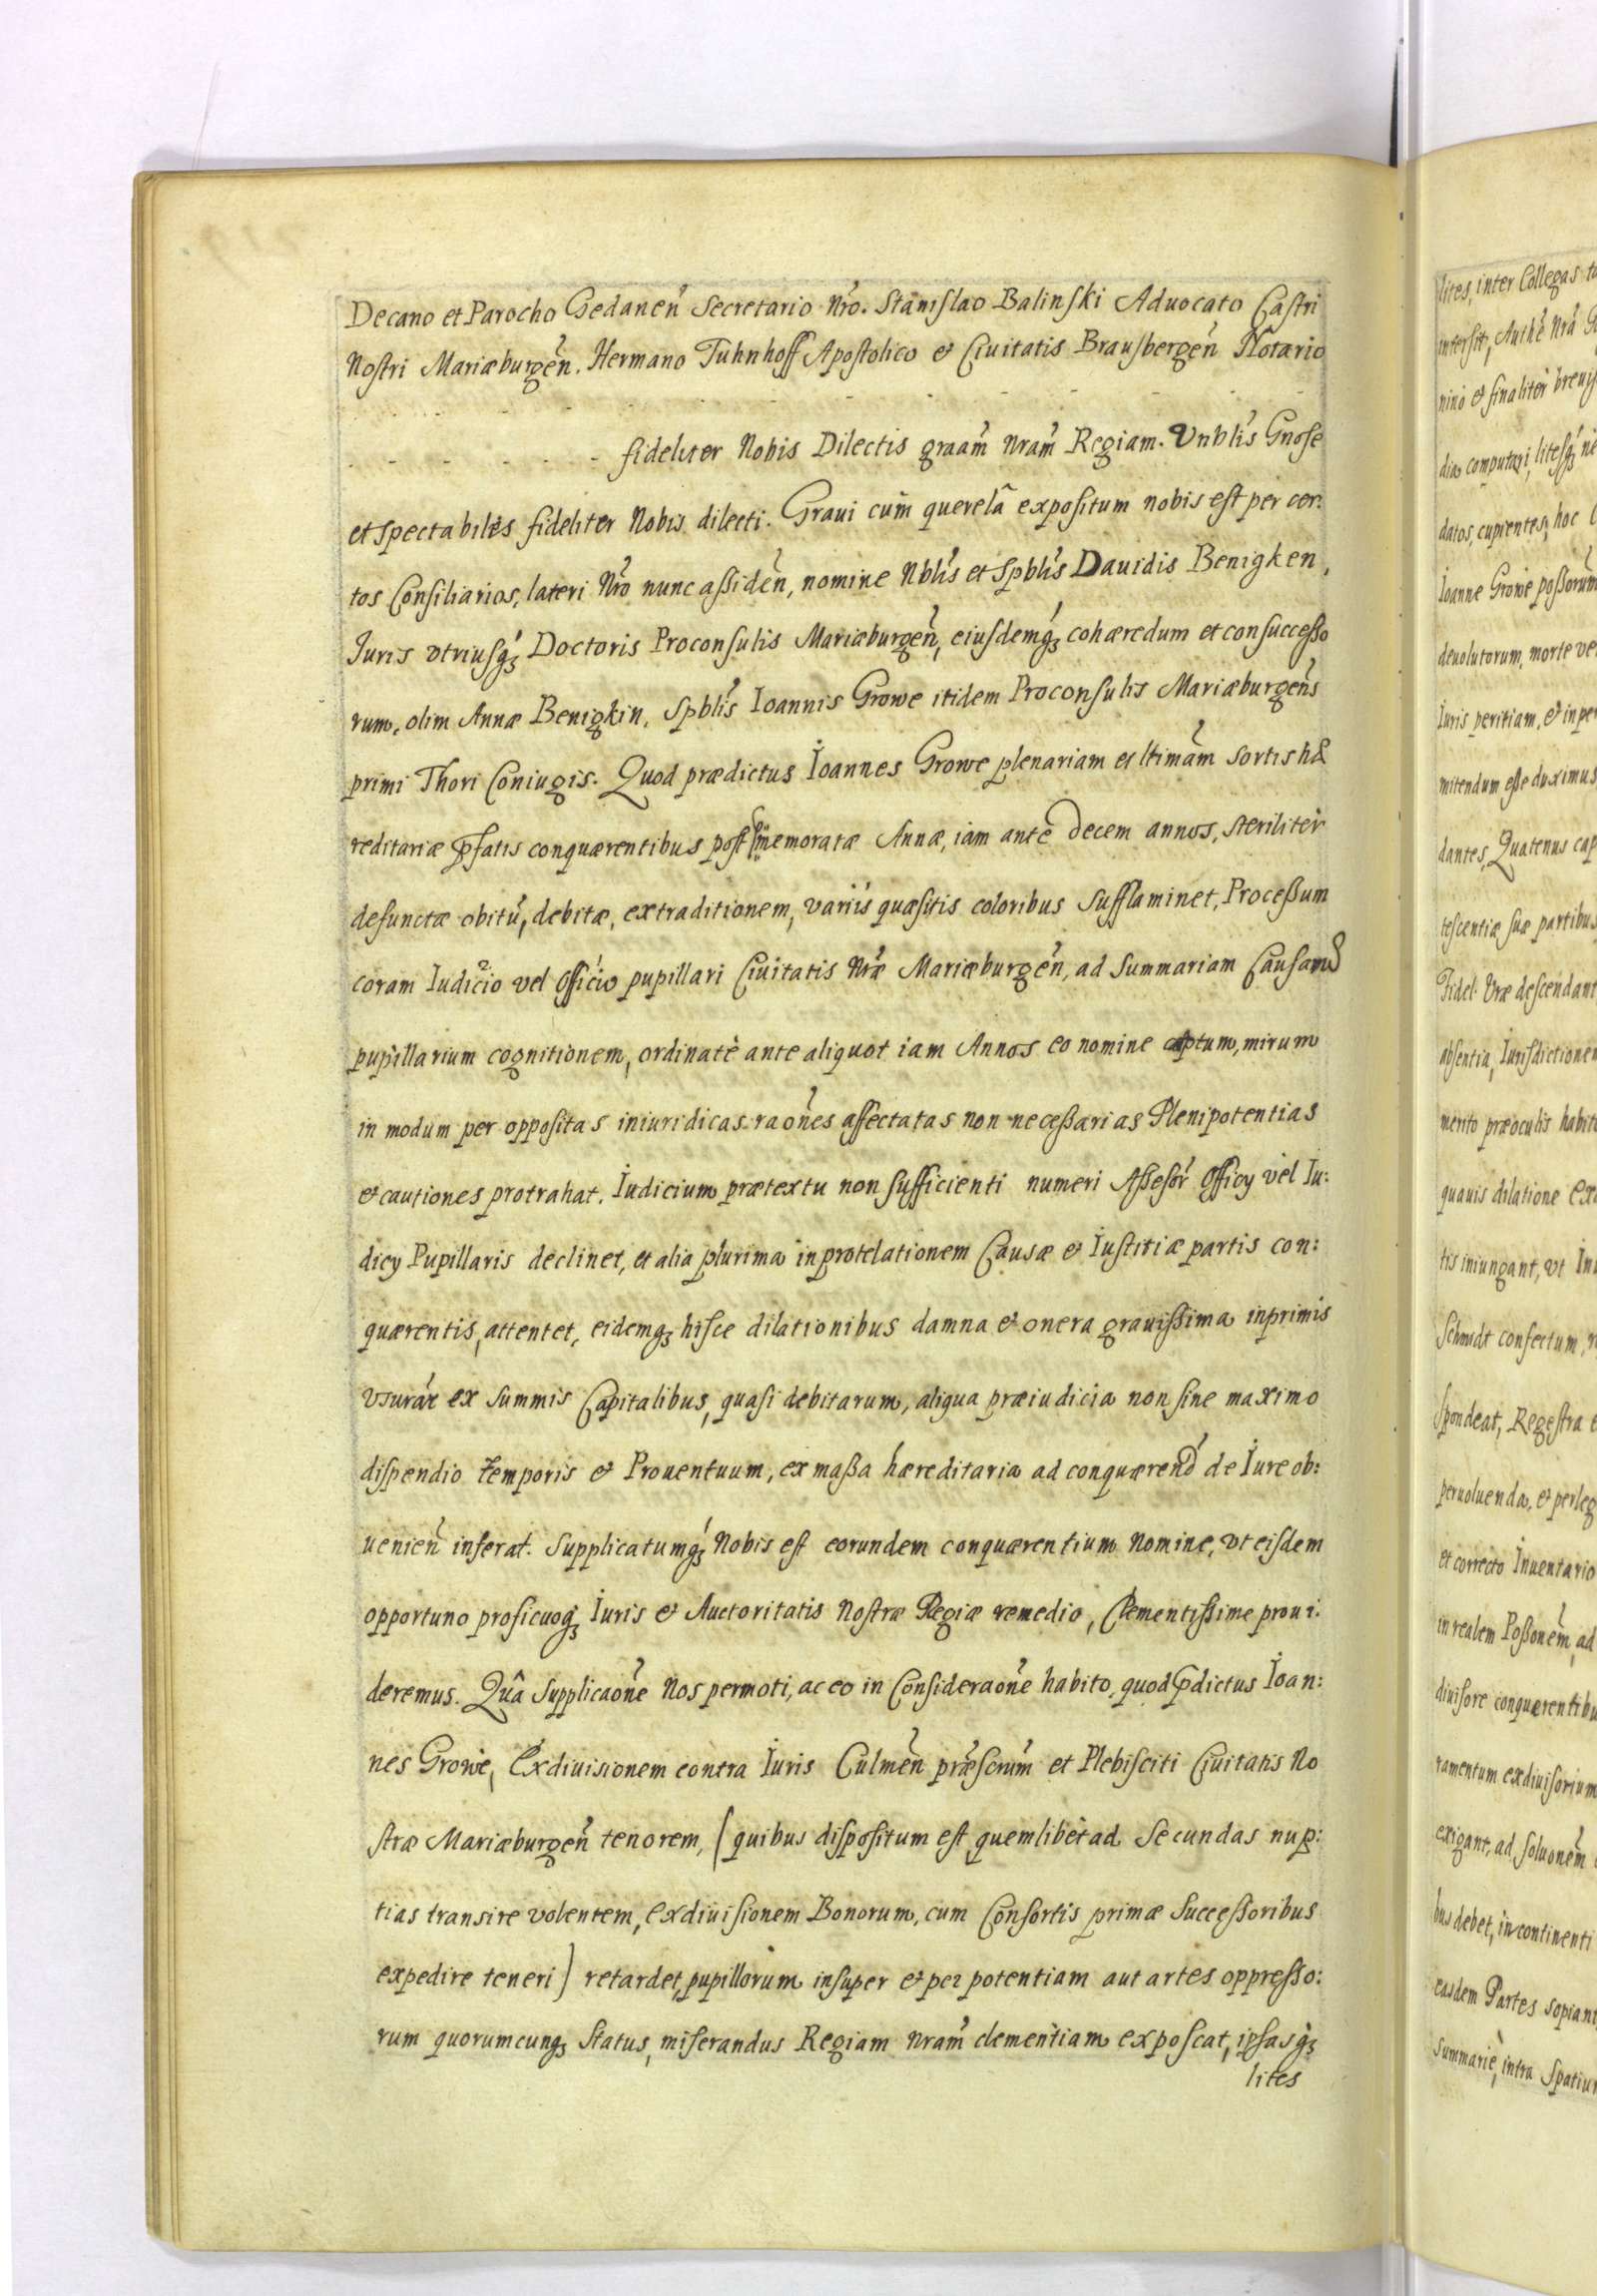 Decano et Parocho Gedanen̉ Secretario Nr̉o. Stanislao Balinski Aduocato Castri
Nostri Mariæburgen̉. Hermano Tuhnhoff Apostolico et Ciuitatis Brausbergen̉ Notario
- - - - - - fideliter Nobis Dilectis graam̉ Nram̉ Regiam. Vnbl̉is Gnose
et spectabiles fideliter Nobis dilecti. Graui cum querelâ expositum nobis est per cer:
tos Consiliarios, lateri Nr̉o nunc assiden̉, nomine Nbl̉is et Spbl̉is Dauidis Benigken,
Juris vtriusq́ꝫ Doctoris Proconsulis Mariæburgen̉, eiusdemq́ꝫ cohæredum et consuccesso
rum, olim Annæ Benigkin, Spbl̉is Ioannis Growe itidem Proconsulis Mariæburgen̉s
primi Thori Coniugis. Quod prædictus Ioannes Growe plenariam et ltimam̉ sortis hæ
reditariæ p̱fatis conquærentibus post memoratæ Annæ, iam ante decem annos, steriliter
defunctæ obitũ, debitæ, extraditionem, variis quæsitis coloribus sufflaminet, Processum
coram Iudicio vel Officio pupillari Ciuitatis Nr̉æ Mariæburgen̉, ad summariam Causarum
pupillarium cognitionem, ordinatè ante aliquot iam Annos eo nomine captum, mirum
in modum per oppositas iniuridicas raon̉es affectatas non necessarias Plenipotentias
et cautiones protrahat. Iudicium prætextu non sufficienti numeri Assesor̉ Officy vel Iu:
dicy Pupillaris declinet, et alia plurima in protelationem Causæ et Iustitiæ partis con:
quærentis, attentet, eidemqꝫ hisce dilationibus damna et onera grauissima inprimis
vsurar̉ ex summis Capitalibus, quasi debitarum, aliqua præiudicia non sine maximo
dispendio temporis et Prouentuum, ex massa hæreditaria ad conquærend̉ de Iure ob:
uenien̉ inferat. Supplicatumq́ꝫ Nobis est eorundem conquærentium Nomine, vt eisdem
opportuno proficuoqꝫ Iuris et Auctoritatis Nostræ Regiæ remedio, Clementissime proui:
deremus. Quâ Supplicaon̉e Nos permoti, ac eo in Consideraon̉e habito, quod p̱dictus Ioan:
nes Growe, Exdiuisionem contra Iuris Culmen̉ præscrum̉ et Plebisciti Ciuitatis No
stræ Mariæburgen̉ tenorem, [quibus dispositum est quemlibet ad secundas nup:
tias transire volentem, exdiuisionem Bonorum, cum Consortis primæ Successoribus
expedire teneri] retardet, pupillorum insuper et per potentiam aut artes oppresso:
rum quorumcunqꝫ Status, miserandus Regiam Nram̉ clementiam exposcat, ipsasq́ꝫ
lites
lites, inter Collegas
intersit,
nino et finaliter breuis
dia computari, litesq́ꝫ
datos, cupientes, hoc
Ioanne Growe possorum
deuolutorum, morte
Iuris peritiam, et in
mitendum esse duximus
dantes, Quatenus
tescentiæ suæ partibus
Fidel. Vræ descendant
absentia, Iurisdictionem
merito præoculis
quauis dilatione
tis iniungant, vt
Schmidt confectum,
spondeat, Regestra
peruoluenda, et
et correcto Inuentario
in realem Posson̉em, ad
diuisore
ramentum exdiuisorium
exigant, ad soluon̉em
bus debet, incontinenti
easdem Partes sopiant
summarie, intra